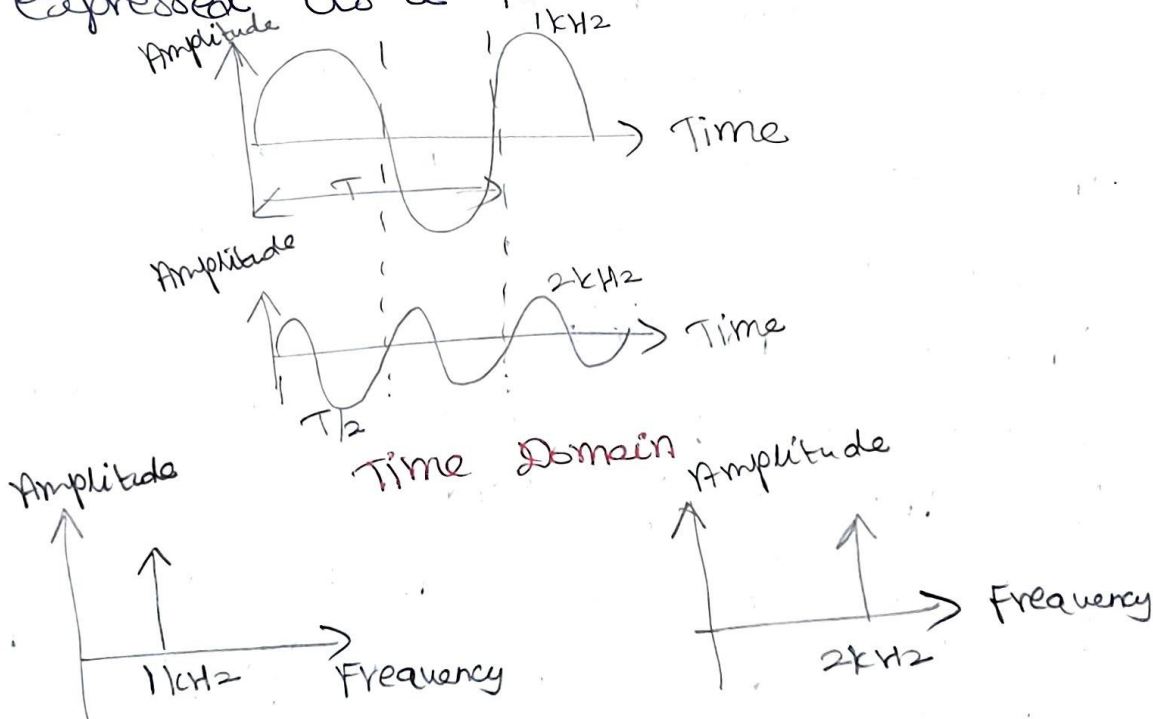 Expressed as a
Amplitude
1kHz
Time
T
Amplitude
2kHz
Time
T/2
Time Domain
Amplitude
Amplitude
1kHz
Frequency
2kHz
Frequency